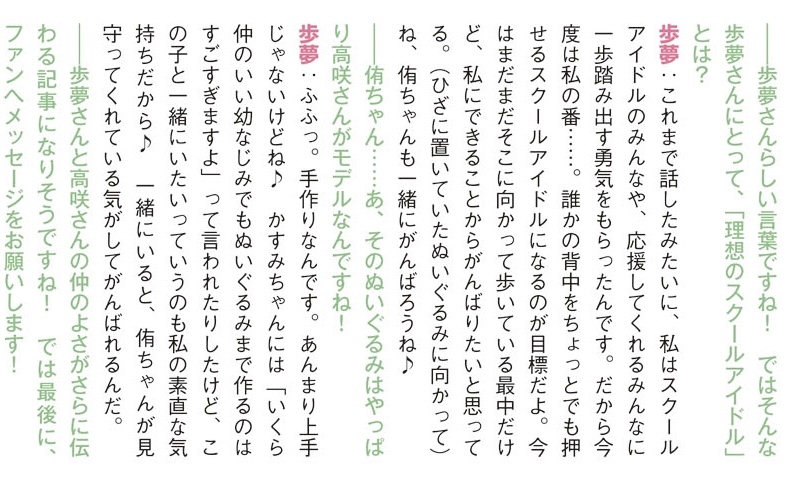 ――歩夢さんらしい言葉ですね！　ではそんな
歩夢さんにとって、「理想のスクールアイドル」
とは？
歩夢：これまで話したみたいに、私はスクール
アイドルのみんなや、応援してくれるみんなに
一歩踏み出す勇気をもらったんです。だから今
度は私の番……。誰かの背中をちょっとでも押
せるスクールアイドルになるのが目標だよ。今
はまだまだそこに向かって歩いている最中だけ
ど、私にできることからがんばりたいと思って
る。（ひざに置いていたぬいぐるみに向かって）
ね、侑ちゃんも一緒にがんばろうね♪
――侑ちゃん……あ、そのぬいぐるみはやっぱ
り高咲さんがモデルなんですね！
歩夢：ふふっ。手作りなんです。あんまり上手
じゃないけどね♪　かすみちゃんには「いくら
仲のいい幼なじみでもぬいぐるみまで作るのは
すごすぎますよ」って言われたりしたけど、こ
の子と一緒にいたいっていうのも私の素直な気
持ちだから♪　一緒にいると、侑ちゃんが見
守ってくれている気がしてがんばれるんだ。
――歩夢さんと高咲さんの仲のよさがさらに伝
わる記事になりそうですね！　では最後に、
ファンへメッセージをお願いします！